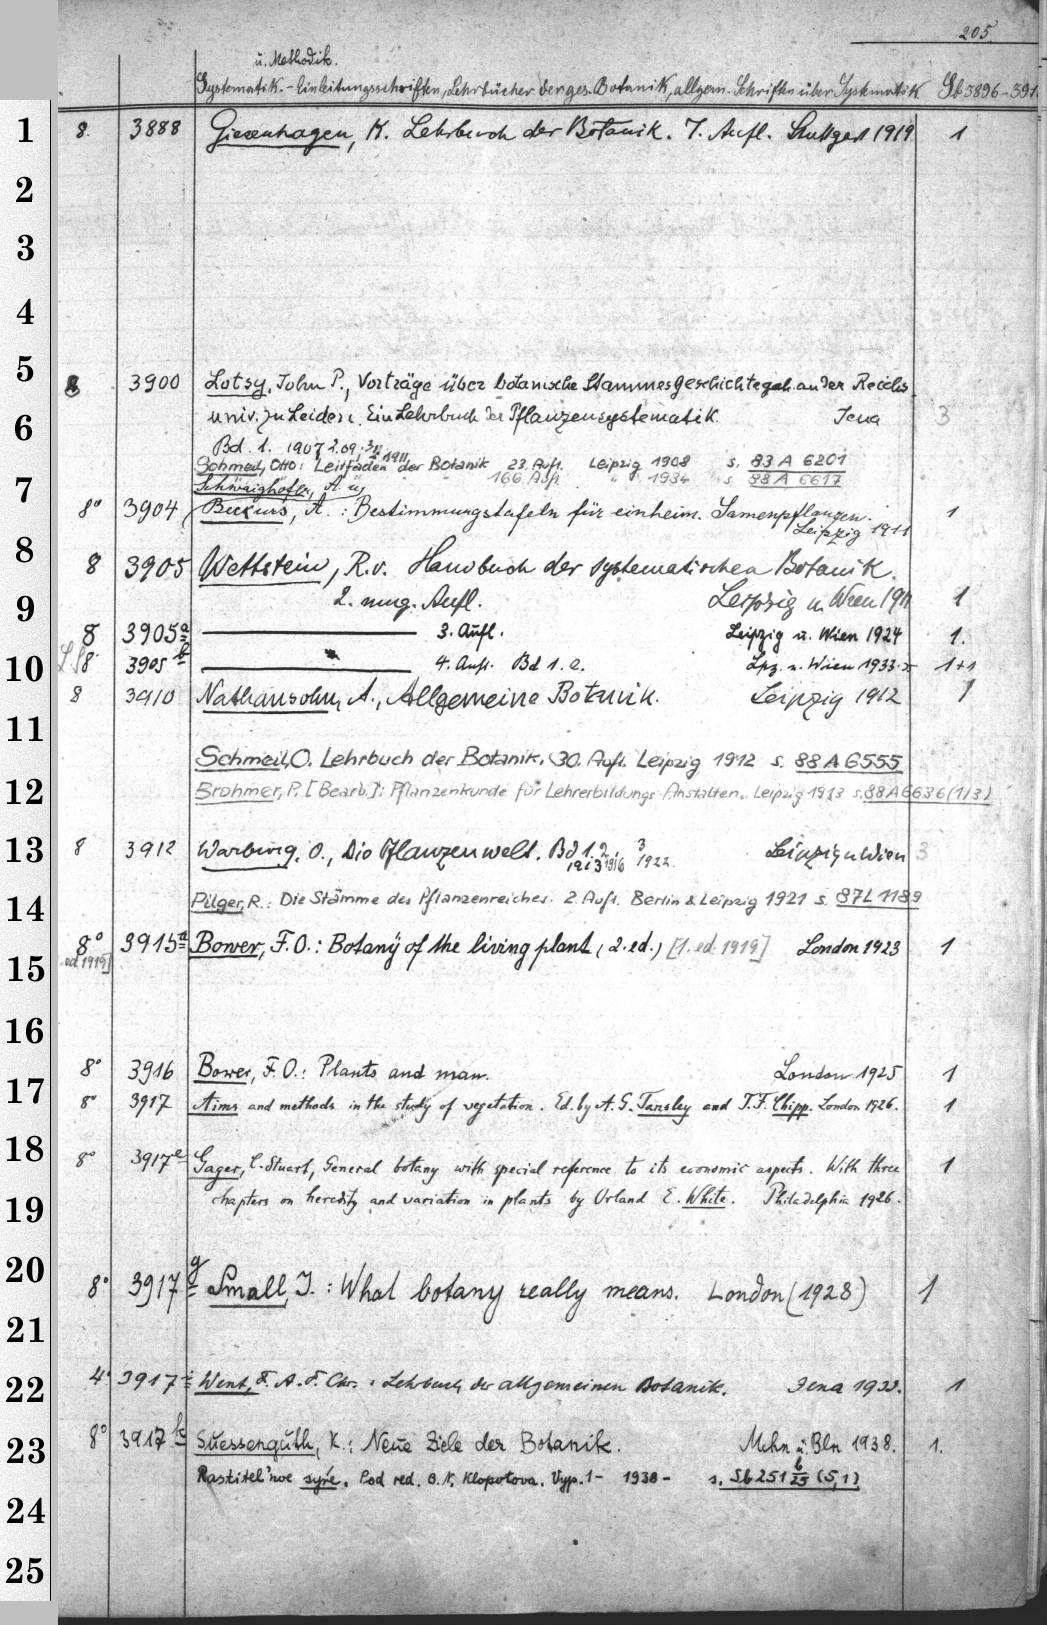 205.
u. Methodik.
Systematik.- Einleitungsschriften, Lehrbücher der ges. Botanik, allgem. Schriften über Systematik Sb 3896-391
1 8. 3888 Giesenhagen, K. Lehrbuch der Botanik. 7. Aufl. Stuttgart 1919 1
2
3
4
5 8 3900 Lotsy, John P., Vorträge über botanische Stammesgeschichte geh. an der Reichs
6 univ. zu Leiden. Ein Lehrbuch der Pflanzensystematik. Jena 3
Bd. 1. 1907 2.09; 3,1 1911
Schmeil, Otto: Leitfaden der Botanik 23. Aufl. Leipzig 1908 s. 83 A 6201
7 166. Aufl. " 1934 s 88 A 6617
Schwaighofer, A. u.
8° 3904 Beckurs, A.: Bestimmungstafeln für einheim. Samenpflanzen. 1
Leipzig 1911
8 8 3905 Wettstein, R. v. Handbuch der systematischen Botanik.
9 2. umg. Aufl. Leipzig u. Wien 1911 1
8 3905a 3. Aufl. Leipzig u. Wien 1924 1.
10 LS 8 3905b 4. Aufl. Bd 1. 2. Lpz. u. Wien 1933-35 1+1
8 3910 Nathansohn, A., Allgemeine Botanik. Leipzig 1912 1
11
Schmeil, O. Lehrbuch der Botanik. 30. Aufl. Leipzig 1912 s. 88 A 6555
12 Brohmer, P. [Bearb.]: Pflanzenkunde für Lehrerbildungs-Anstalten. Leipzig 1913 s. 88 A 6636 (1/3)
13 8 3912 Warburg, O., Die Pflanzenwelt. Bd 1. 2. 3 Leipzig u Wien 3
1913 1916 1922
14 Pilger, R.: Die Stämme des Pflanzenreiches. 2. Aufl. Berlin & Leipzig 1921 s. 87 L 1189
8° 3915a Bower, F.O.: Botany of the living plant (2. ed.) [1. ed. 1919] London 1923 1
15 ed. 1919]
16
8° 3916 Bower, F.O.: Plants and man. London 1925 1
17 8° 3917 Aims and methods in the study of vegetation. Ed. by A. G. Tansley and T. F. Chipp. London 1926. 1
18 8° 3917e Gager, C. Stuart, General botany with special reference to its economic aspects. With three 1
19 chapters on heredity and variation in plants by Orland E. White. Philadelphia 1926.
20 8° 3917g Small, J.: What botany really means. London (1928) 1
21
22 4° 3917i Went, F. A. F. Chr.: Lehrbuch der allgemeinen Botanik. Jena 1933. 1
23 8° 3917k Suessenguth, K.: Neue Ziele der Botanik. Mchn u. Bln 1938. 1.
Rastitel'noe syr'e. Pod red. B. N. Klopotova. Vyp. 1- 1938- s. Sb 251 b/25 (5,1)
24
25